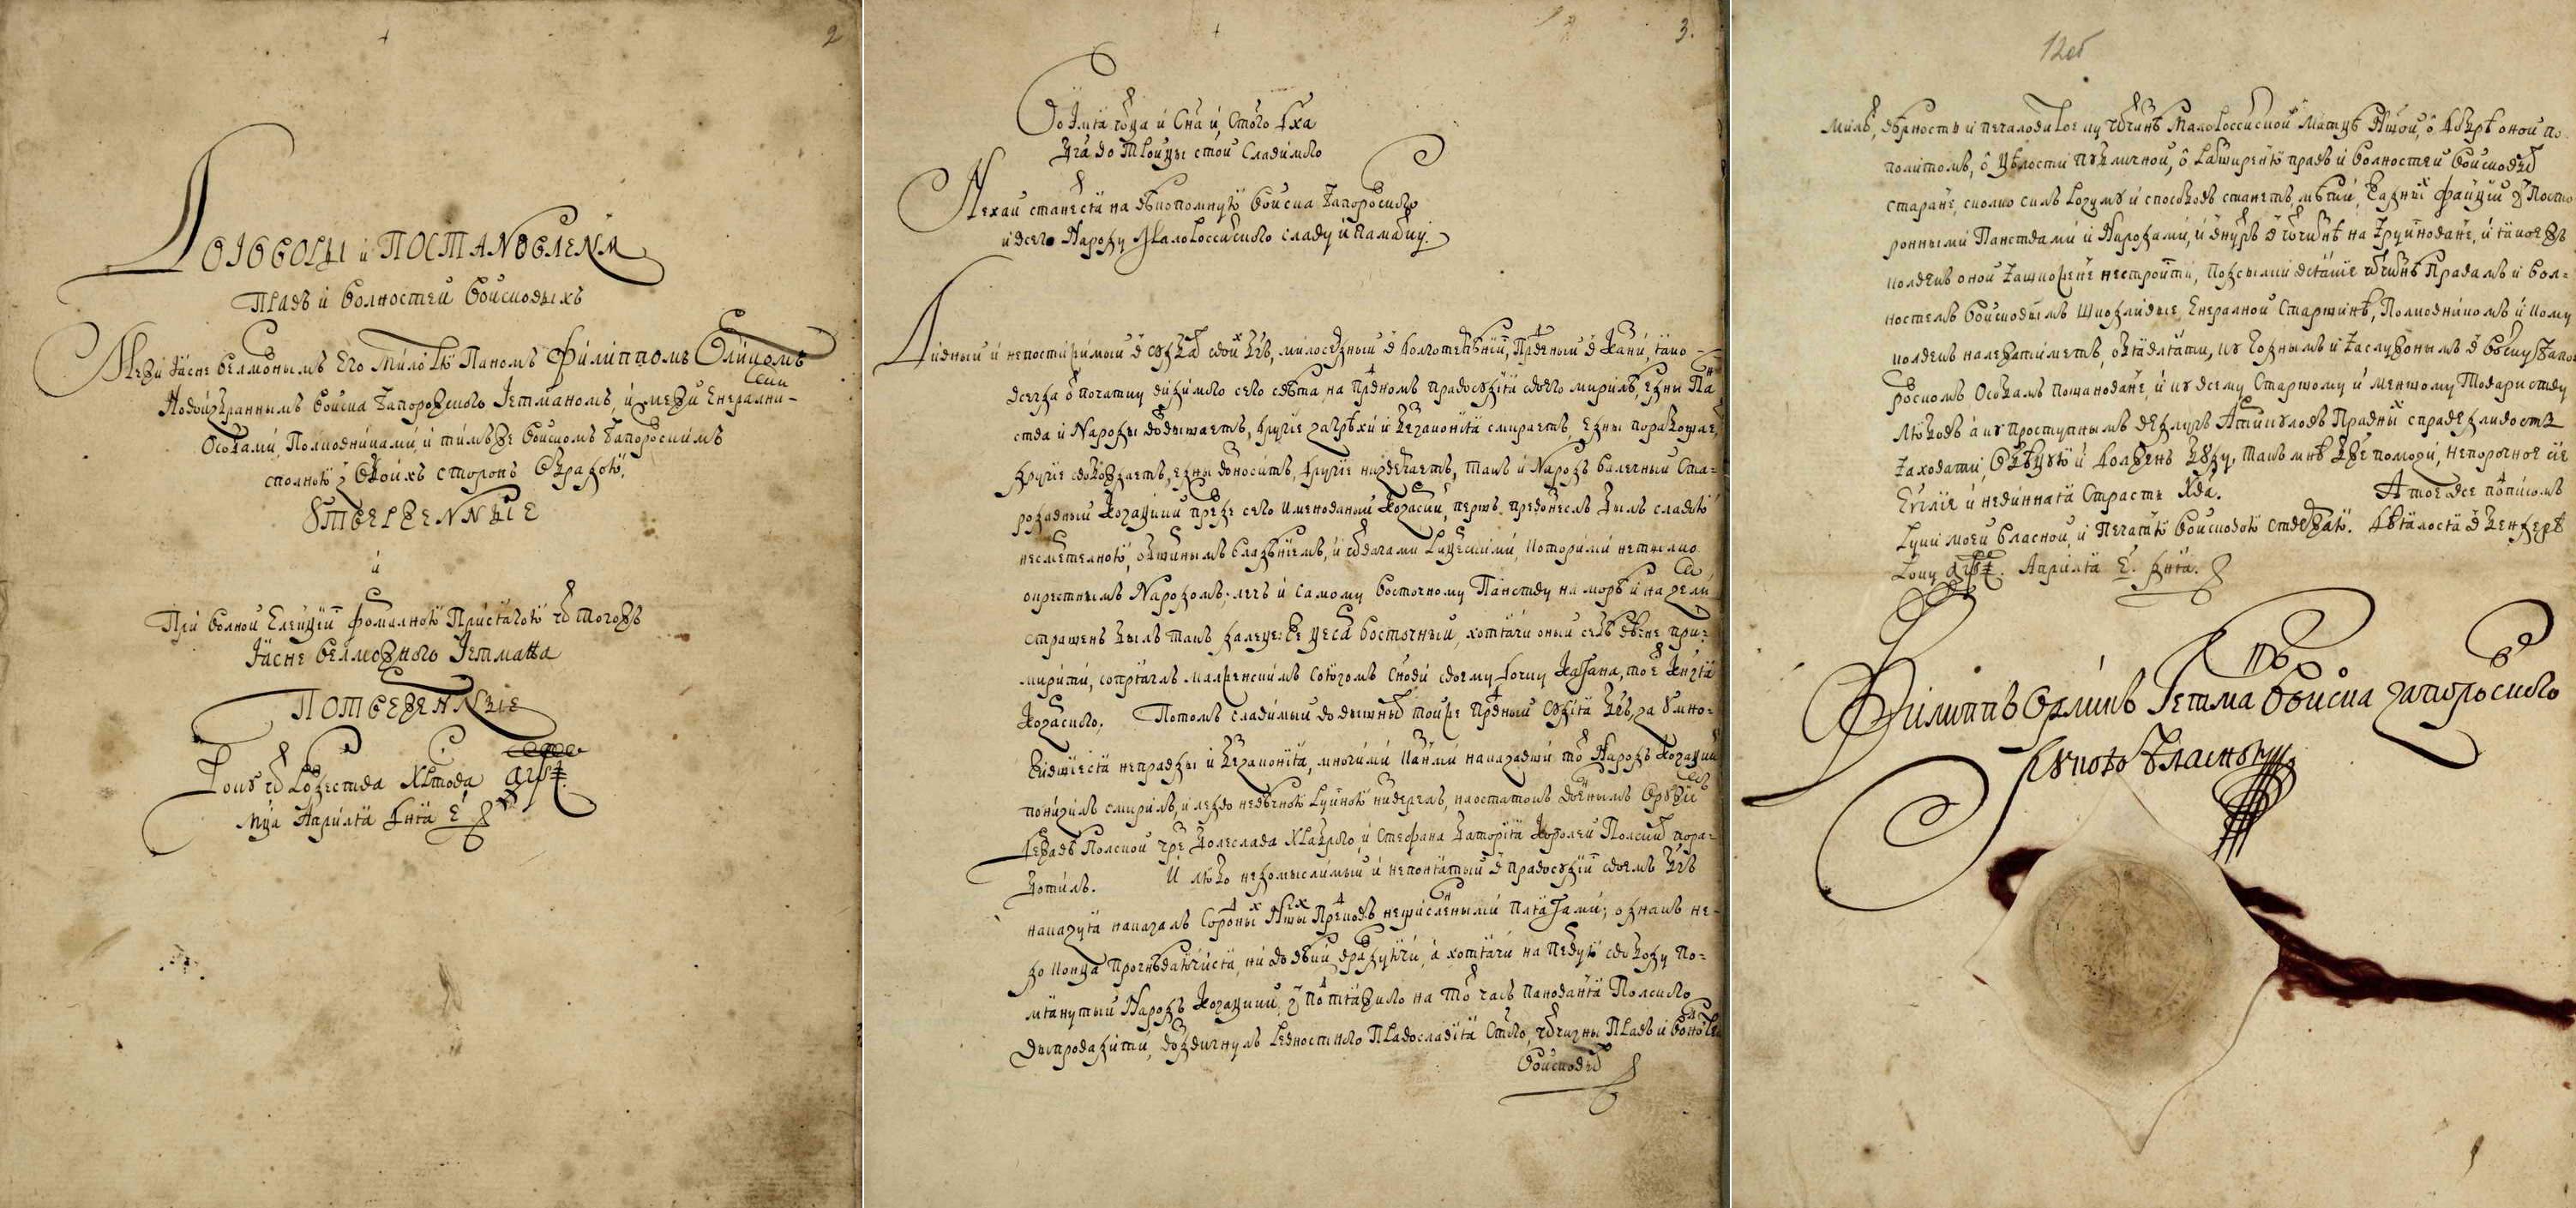 2
ДОГОВОРЫ и ПОСТАНОВЛЕНЯ
Правъ и волностей Войсковыхъ
Межи Ясне велможнымъ Его Милостю Паномъ Филиппомъ Орликомъ
Новоизбраннымъ Войска Запорожского Гетманомъ, и межи Енералними
Особами, Полковниками, и тимъже Войскомъ Запорожскимъ
сполною з обоихъ сторонъ Обрадою,
УТВЕРЖЕННЫЕ
и
При волной Елекціи формалною Присягою ѿ тогожъ
Ясне велможного Гетмана
ПОТВЕРЖЕННЫЕ
Року ѿ Рожества Христова, ҂аѱі.
мца Априля дня е҃
3.
Во Имя Оца и Сна и, Стого Дха
Бга во Троицы стой Славимого
Нехай станется на вѣкопомную Войска Запорожского
и всего Народу Малороссийского славу и памятку.
Дивный и непостижимый в судбах своих Бгъ, милосердный в долготерпѣніи, Праведный в казни, яко
всегда ѿ початку видимого сего свѣта, на праведномъ правосудія своего мирилѣ, едны Панства
и Народы возвышаетъ, другіе за грѣхи и беззаконія смиряетъ, едны порабощает,
другіе свобождаетъ, едны возноситъ, другіе низвергаетъ, такъ и Народъ валечный Ста-
рожитный Козацкий прежде сего именованый Козарский, первѣ превознеслъ былъ славою
несмертелною, обширнымъ владѣніемъ, и отвагами Рицерскими, которими не тылко
окрестнымъ Народомъ, лечъ и самому Восточному Панству на морѣ и на земли
страшенъ былъ такъ далеце: же цесар Восточный, хотячи оный себѣ вѣчне при-
мирити, сопряглъ малженскимъ союзомъ Снови своему дочку Кагана, тое Князя
Козарского. Потомъ славимый во вышних тойже праведный судія Бгъ, за умно-
жившіеся неправды и беззаконія, многими казнми наказавши тот Народъ Козацкий
понизилъ, смирилъ, и ледво не вѣчною Руиною низверглъ, наостатокъ военнымъ оружиемъ
Державѣ Полской чрез Болеслава Храброго, и Стефана Баторія Королей Полских пора-
ботилъ. И любо недомыслимый и непонятый в правосудіи своемъ Бгъ
казуя наказалъ Сродных Нших Предковъ незчисленными плягами; однакъ не
до конца прогнѣваючися, ни во вѣки враждуючи, а хотячи на первую свободу по-
мянутый Народъ Козацкий, з под тяжкого на тот часъ панованя Полского
выпровадити, воздвигнулъ ревностного Православія Стого, отчизны Правъ и волностей
Войсковых
12об
милъ, вѣрность и печаловитое ку отчизнѣ Малороссийской Матцѣ Ншой, о добрѣ оной по-
политомъ, о цѣлости публичной, о расширеню правъ и волностей Войсковых
старане, сколко силъ розуму и способовъ станетъ, мѣти, Жадных факций з Посто-
ронными Панствами и Народами, и внутрь в отчизнѣ на зруйноване, и якоежъ
колвекъ оной зашкожене не строити, подсылки всѣляіе отчизнѣ Правамъ и вол-
ностемъ Войсковымъ шкодливые, Енералной Старшинѣ, Полковникомъ и кому
колвекъ належатиметъ, объявляти, ку годнымъ и заслужонымъ в Войску Запо-
рожскомъ Особамъ пошановане, и ку всему Старшому и меншому Товариству
любовъ а ку проступнымъ ведлугъ Артикуловъ Правных справедливость
заховати, обѣцую и долженъ буду, такъ мнѣ Бже поможи, непорочное сіе
Евгліе и невинная Страсть Хва. А тое все подписомъ
Руки моей власной, и печатю Войсковою ствержаю. Дѣялося в Бендерѣ
Року ҂аѱі. Априля е҃. дня.
Филиппъ Орликъ Гетман Войска Запорожского
рукою власною